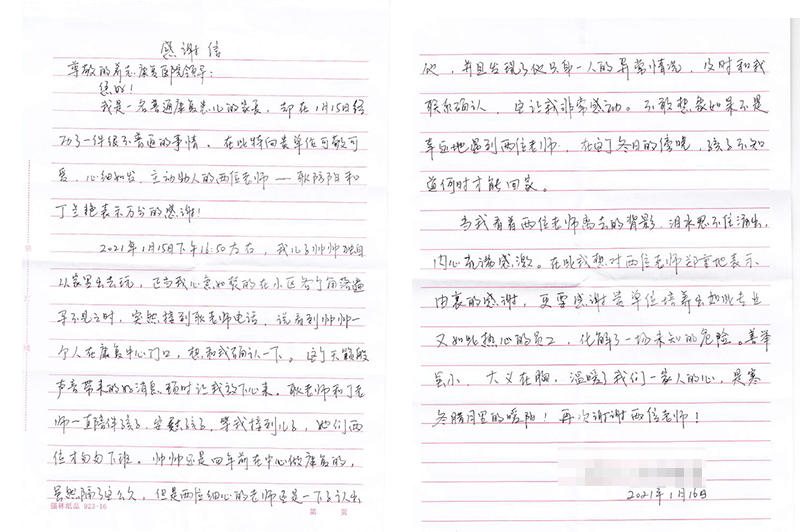 感谢信
尊敬的养志康复医院领导：
您好！
我是一名普通康复患儿的家长，却在1月15日经
历了一件很不普通的事情。在此特向贵单位可敬可
爱、心细如发、主动助人的两位老师——耿陪阳和
丁兰艳表示万分的感谢！
2021年1月15日下午16:50左右，我儿子帅帅独自
从家里出去玩，正当我心急如焚的在小区各个角落遍
寻不见之时，突然接到耿老师电话，说看到帅帅一
个人在康复中心门口，想和我确认一下。这个天籁般
声音带来的的消息顿时让我放下心来。耿老师和丁老
师一直陪伴孩子，安慰孩子，等我接到儿子，她们两
位才匆匆下班。帅帅还是四年前在中心做康复的，
虽然隔了这么久，但是两位细心的老师还是一下子认出
他，并且发现了他只身一人的异常情况，及时和我
联系确认，实让我非常感动。不敢想象如果不是
幸运地遇到两位老师，在这个冬日的傍晚，孩子不知
道何时才能回家。
当我看着两位老师离去的背影，泪水忍不住涌出，
内心充满感激。在此我想对两位老师郑重地表示
由衷的感谢，更要感谢贵单位培养出如此专业
又如此热心的员工，化解了一场未知的危险。善举
虽小，大义在胸，温暖了我们一家人的心，是寒
冬腊月里的暖阳！再次谢谢两位老师！
2021年1月16日
强林纸品 923-16
第 页